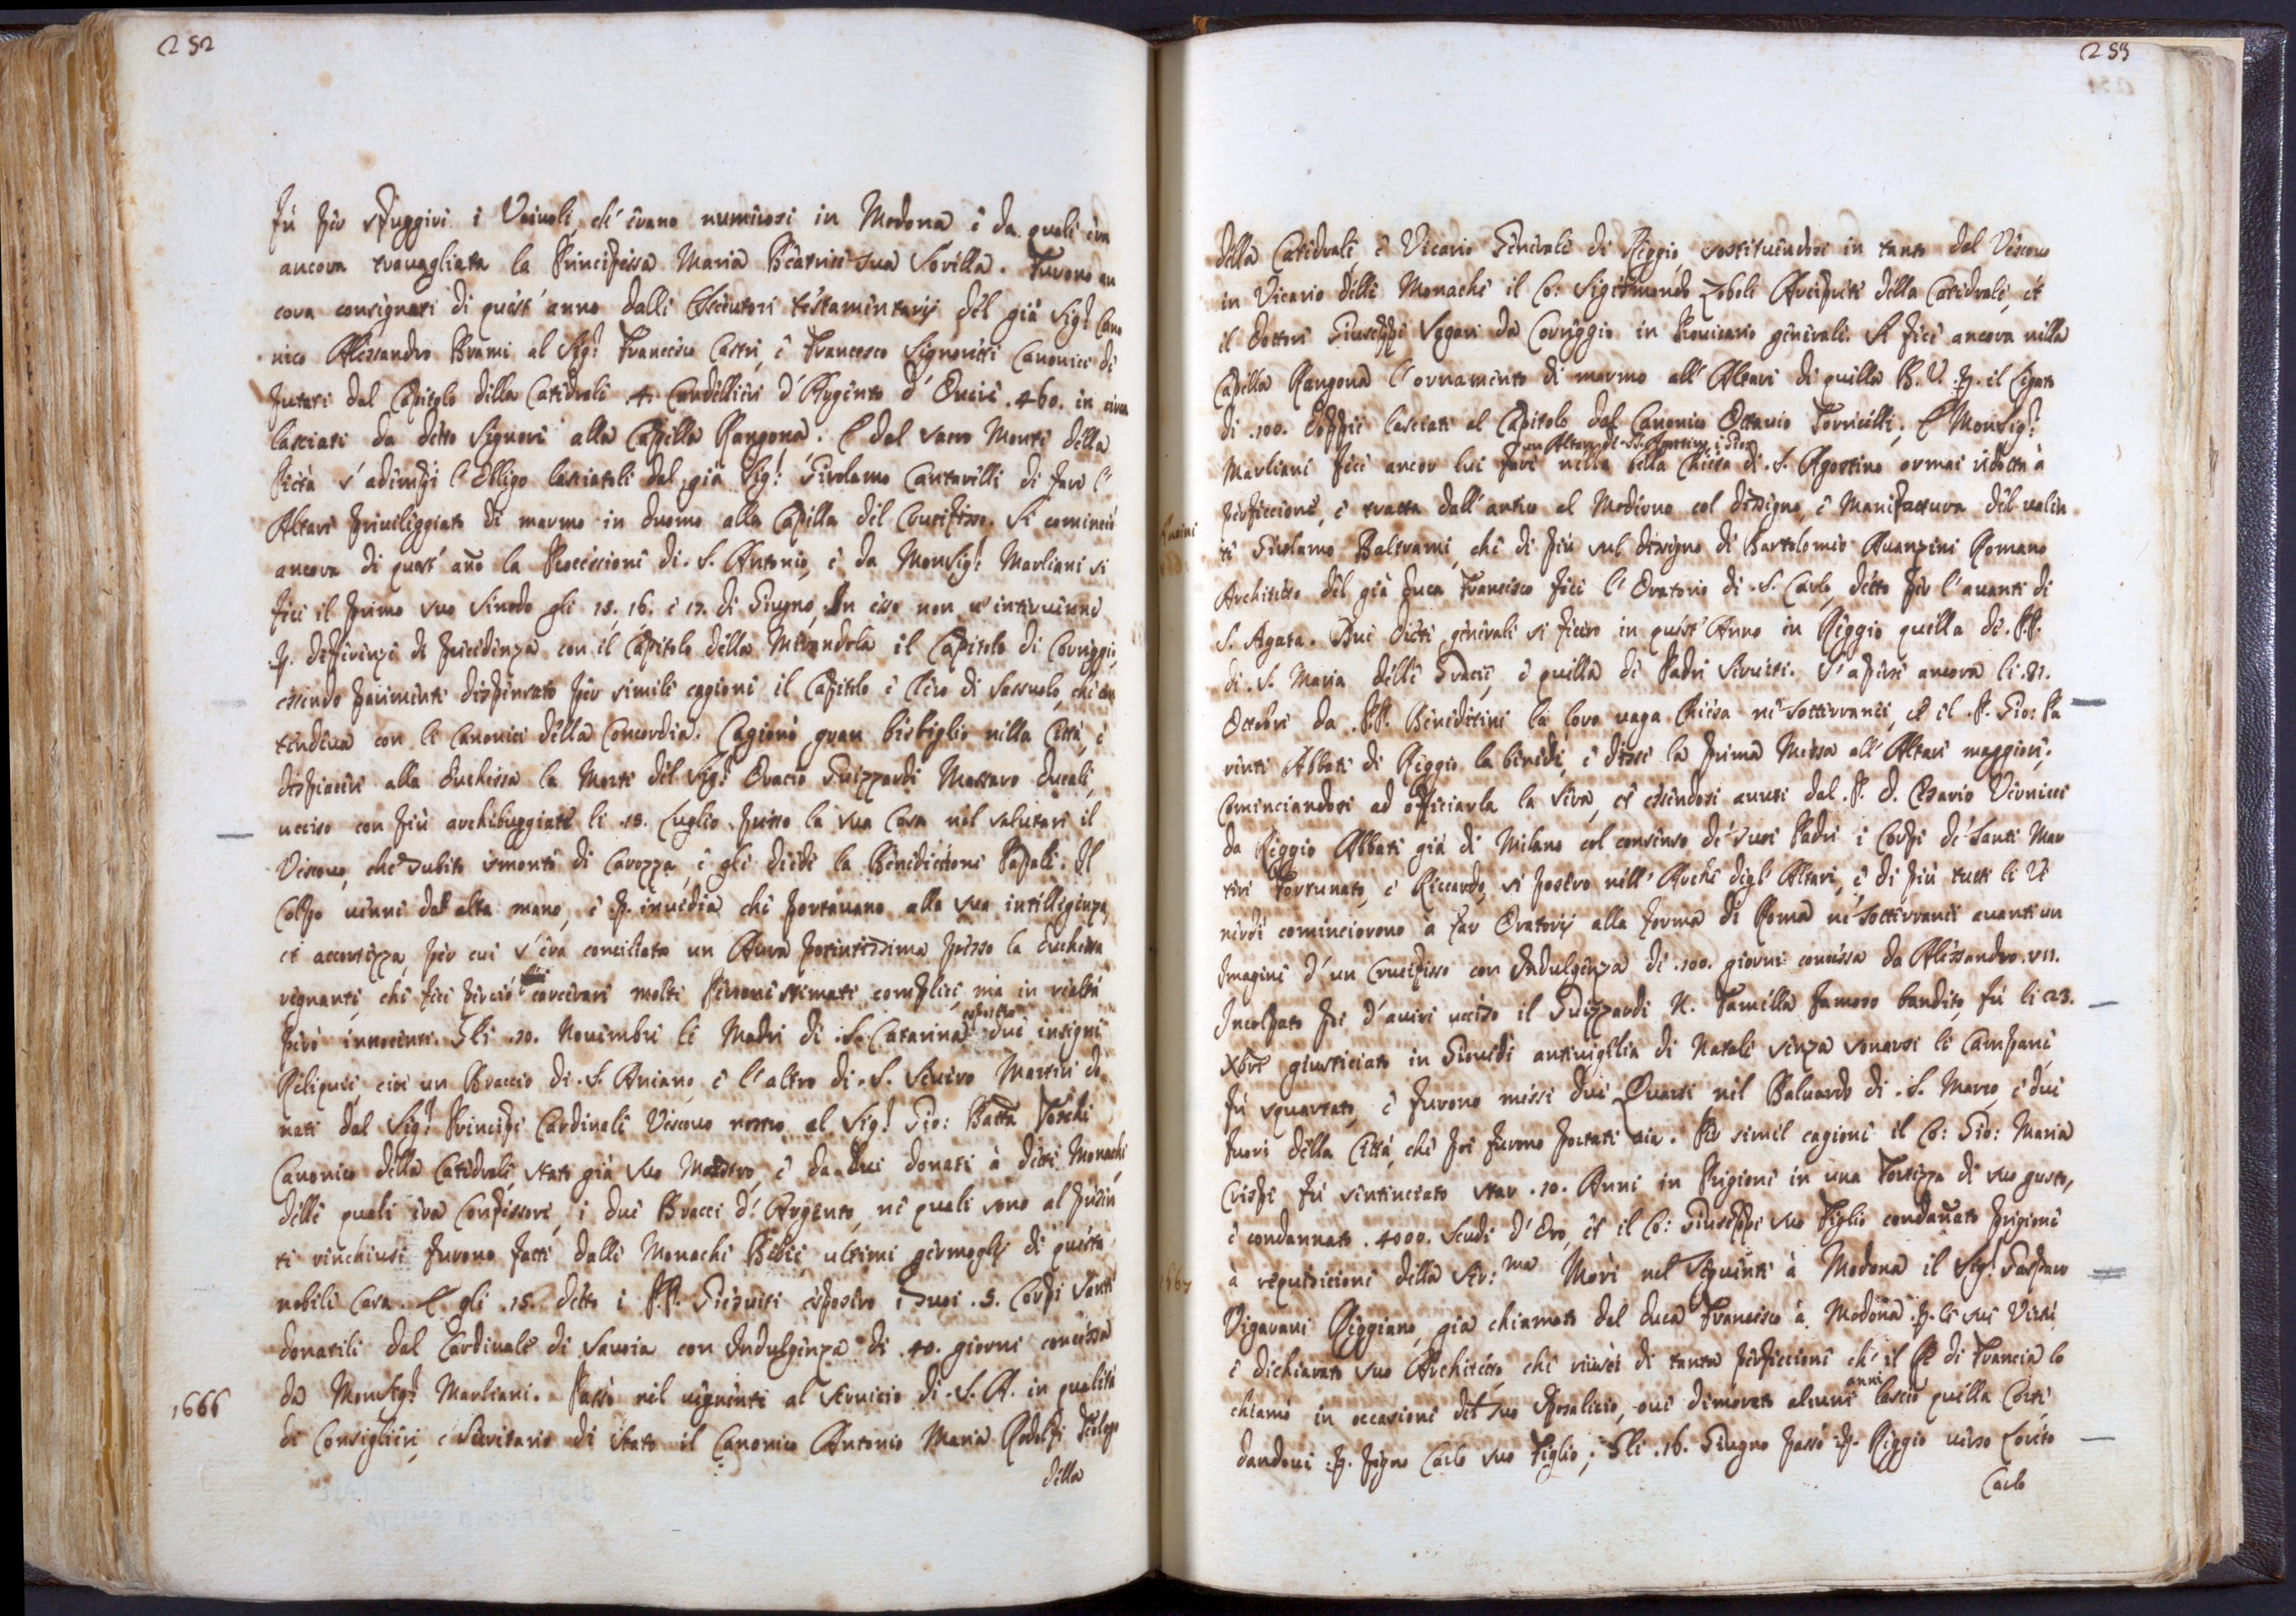 252
fù per sfuggire i Vaiuoli, ch'erano numerosi in Modona e da quali era
ancora trauagliata la Principessa Maria Beatrice sua Sorella. Furono an
cora consignati di quest'anno dalli Essecutori testamentarij del già Sig.r Cano
nico Alessandro Brami al Sig.r Francesco Castri, e Francesco Signoretti Canonici de
putati dal Capitolo della Catedrale 4. Candellieri d'Argento d'Oncie .460. in circa
lasciati da detto Signore alla Capella Rangona. E dal sacro Monte della
Pietà s'adempì l'obligo lasciatoli dal già Sig.r Girolamo Cantarelli di fare l'
Altare priuileggiato di marmo in duomo alla Capella del Crucifisso. Si cominciò
ancora di quest' año la Processione di .S. Antonio, e da Monsig.r Marliani si
fece il primo suo Sinodo gli 15. 16. e 17. di Giugno, In esso non u'interuenne
p. diferenze di precedenza con il Capitolo della Mirandola il Capitolo di Coreggio,
essendo parimente dispensato per simile cagione il Capitolo e Clero di Sassuolo, che con
tendeua con li Canonici della Concordia. Cagionò gran bisbiglio nella Città, e
dispiacere alla Duchessa la Morte del Sig.r Oracio Guizzardi Massaro Ducale,
ucciso con più archibuggiate li .15. Luglio presso la sua Casa nel salutare il
Vescouo, che subito smontò di Carozza, e gli diede la Benedictione Papale. Il
Colpo uenne da alta mano, e p. inuidia che portauano alla sua intelligenza,
et accortezza, per cui s'era conciliata un Aura potentissima presso la Duchessa
regnante, che fece perciò carcerare molti Persone stimate complici, mà in realtà
però innocenti. Gli .20. Nouembre le Madri di .S. Catarina esposero due insigni
Reliquie, cioè un Braccio di .S. Aniano, e l'altro di .S. Seuero Martiri do
nati dal Sig.r Principe Cardinale Vescouo nostro al Sig.r Gio: Batta Toschi
Canonico della Catedrale, stato già suo Maestro, e da Lui donati à dette Monache,
delle quali era Confessore, i due Bracci d'Argento, ne quali sono al presen
te rinchiusi furono fatti dalle Monache Bebie, ultimi germoglij di questa
nobile Casa. E gli .15. detto i P.P. Giesuiti esposero i suoi .5. Corpi Santi
donatili dal Cardinale di Sauoia con Indulgenza di .40. giorni concessa
da Monsig.r Marliani. Passò nel uegnente al Seruicio di .S. A. in qualità
1666
di Consigliere, e Secretario di stato il Canonico Antonio Maria Rodolfi Teologo
della
253
della Catedrale, e Vicario Generale di Reggio, sostituendosi in tanto dal Vescouo
in Vicario delle Monache il Co: Sigismondo Zoboli Arciprete della Catedrale, et
il Dottore Giuseppe Vegari da Coreggio in Prouicario generale. Si fece ancora nella
Capella Rangona l'ornamento di marmo all'Altare di quella B. V. p. il Legato
di .100. Doppie lasciate al Capitolo dal Canonico Ottauio Torricelli; E Monsig.r
Marliani fece ancor lui fare nella bella Chiesa di .S. Agostino ormai ridotta à
perfectione, e tratta dall'antico al Moderno col dissegno, e Manifattura del ualen
te Girolamo Beltrami, che di più sul disegno di Bartolomeo Auanzini Romano
Architetto del già Duca Francesco fece l'Oratorio di .S. Carlo, detto per l'auanti di
S. Agata. Due Diete generali si fecero in quest'Anno in Reggio quella de .P.P.
di .S. Maria delle Gracie, e quella de Padri Seruiti. S'aperse ancora li .31.
Ottobre da .P.P. Beneditini la loro uaga Chiesa ne Sotterranei, et il .P. Gio: Pa
renti Abbate di Reggio la benedì, e disse la prima Messa all'Altare maggiore,
Cominciandosi ad officiarla la sera, et essendosi auuti dal .P. D. Cesario Vernicci
da Reggio Abbate già di Milano col consenso de suoi Padri i Corpi de Santi Mar
tiri Fortunato, e Riccardo, si posero nell'Arche degl'Altari, e di più tutti li Ve
nerdì cominciorono à far Oratorij alla forma di Roma ne Sotterranei auanti un
Imagine d'un Crucifisso con Indulgenza di .100. giorni concessa da Alessandro .VII.
Incolpato poi d'auere ucciso il Guizzardi N. Tamella famoso bandito fù li 23.
Xbre giusticiato in Giouedì antiuigilia di Natale senza sonarsi le Campane,
fù squartato, e furono messi due Quarti nel Baluardo di .S. Marco, e due
fuori della Città, che poi furono portati uia. Per simil cagione il Co: Gio: Maria
Crispi fù sentenciato star .10. Anni in Prigione in una Fortezza di suo gusto,
e condannato .4000. Scudi d'Oro, et il Co: Giuseppe suo Figlio condañato prigione
à requisicione della Ser:ma Morì nel Seguente à Modona il Sig.r Gasparo
1667
Vigarani Reggiano, già chiamato dal Duca Francesco à Modona p. le sue Virtù
e dichiarato suo Architetto, che riuscì di tanta perfeccione ch'il Re di Francia lo
chiamò in occasione del suo Sposalicio, oue dimorato alcuni anni lasciò quella Corte
dandoui p. pegno Carlo suo Figlio; Gli .16. Giugno passò p. Reggio uerso Loreto
Carlo